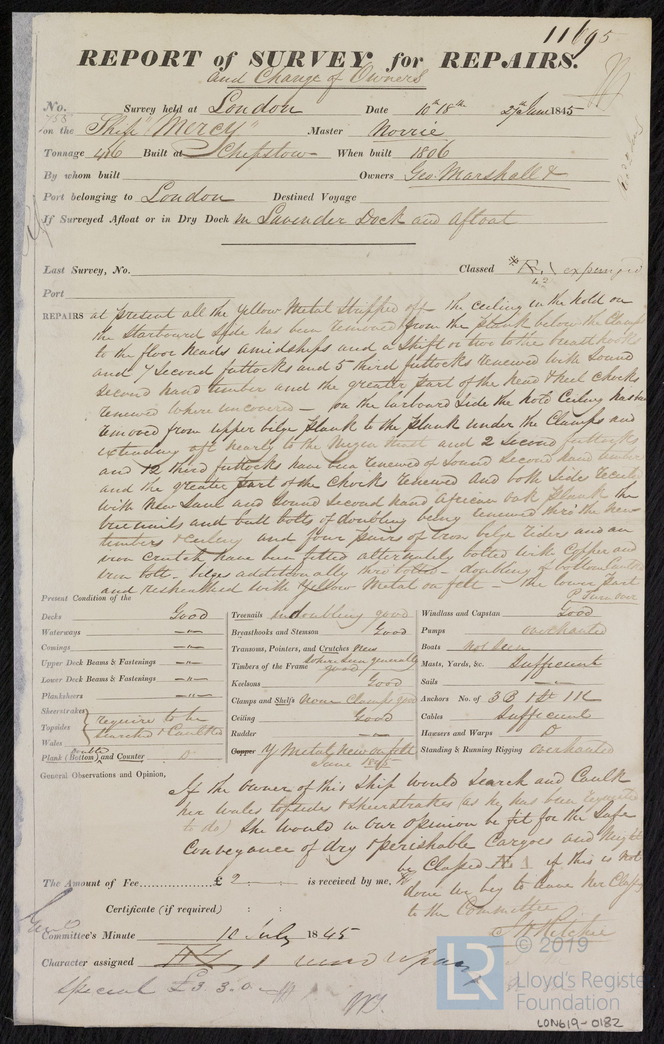 11695
REPORT of SURVEY for REPAIRS.
and Change of Owners
No. 755 Survey held at London Date 10th 18th 27th June 1845
on the Ship "Mercy" Master Norrie
Tonnage 406 Built at Chepstow When built 1806
By whom built Owners Geo. Marshall &
Port belonging to London Destined Voyage
If Surveyed Afloat or in Dry Dock in Lavender Dock and afloat
Last Survey, No. Classed expunged
Port
REPAIRS at present all the Yellow Metal Stripped off the Ceiling in the hold on
the Starboard Side has been removed from the plank below the Clamps
to the floor heads amidships and a Shift or two to the breasthooks
and 7 Second futtocks and 5 third futtocks renewed with Sound
Second hand timber and the greater part of the head & heel Chocks
renewed where uncovered — on the larboard Side the hold Ceiling has been
removed from upper bilge plank to the plank under the Clamps and
extending aft nearly to the Mizen Mast and 2 Second futtocks
and 12 third futtocks have been renewed of Sound Second hand timber
and the greater part of the Chocks renewed and both Sides
with New and Sound Second hand African oak plank the
treenails and butt bolts of doubling being renewed thro the new
timbers & Ceiling and four pairs of Iron bilge riders and an
iron Crutch have been fitted alternately bolted with Copper and
iron bolts — bilges additionally thro bolted — doubling of bottom Caulked
and resheathed with Yellow Metal on felt — the lower part
Present Condition of the
Decks Good
Waterways —"—
Comings —"—
Upper Deck Beams & Fastenings —"—
Lower Deck Beams & Fastenings —"—
Planksheers —"—
Sheerstrakes
Topsides require to be
searched & Caulked
Wales
Plank (Bottom) and Counter Do
doubled
Treenails in doubling good
Breasthooks and Stemson Good
Transoms, Pointers, and Crutches New
Timbers of the Frame where seen generally
good
Keelsons Good
Clamps and Shelfs Clamps good
Ceiling Good
Rudder —"—
Copper Y Metal New on felt
June 1845
Windlass and Capstan Good
Pumps overhauled
Boats not seen
Masts, Yards, &c. Sufficient
Sails —"—
Anchors No. of 3 B 1 St 1 K
Cables Sufficient
Hawsers and Warps Do
Standing & Running Rigging overhauled
General Observations and Opinion, If the owner of this Ship would Search and Caulk
her Wales topsides & sheerstrakes (as he has been requested
to do) She would in our opinion be fit for the Safe
Conveyance of dry & perishable Cargoes and Might
be Classed if this is not
done we beg to leave her Class
to the Committee
The Amount of Fee £ 2 : : is received by me,
Certificate (if required) : :
Committee's Minute 10 July 1845
Character assigned
Special £3.3.0
© 2019
LR
Lloyd's Register
Foundation
LON619-0182